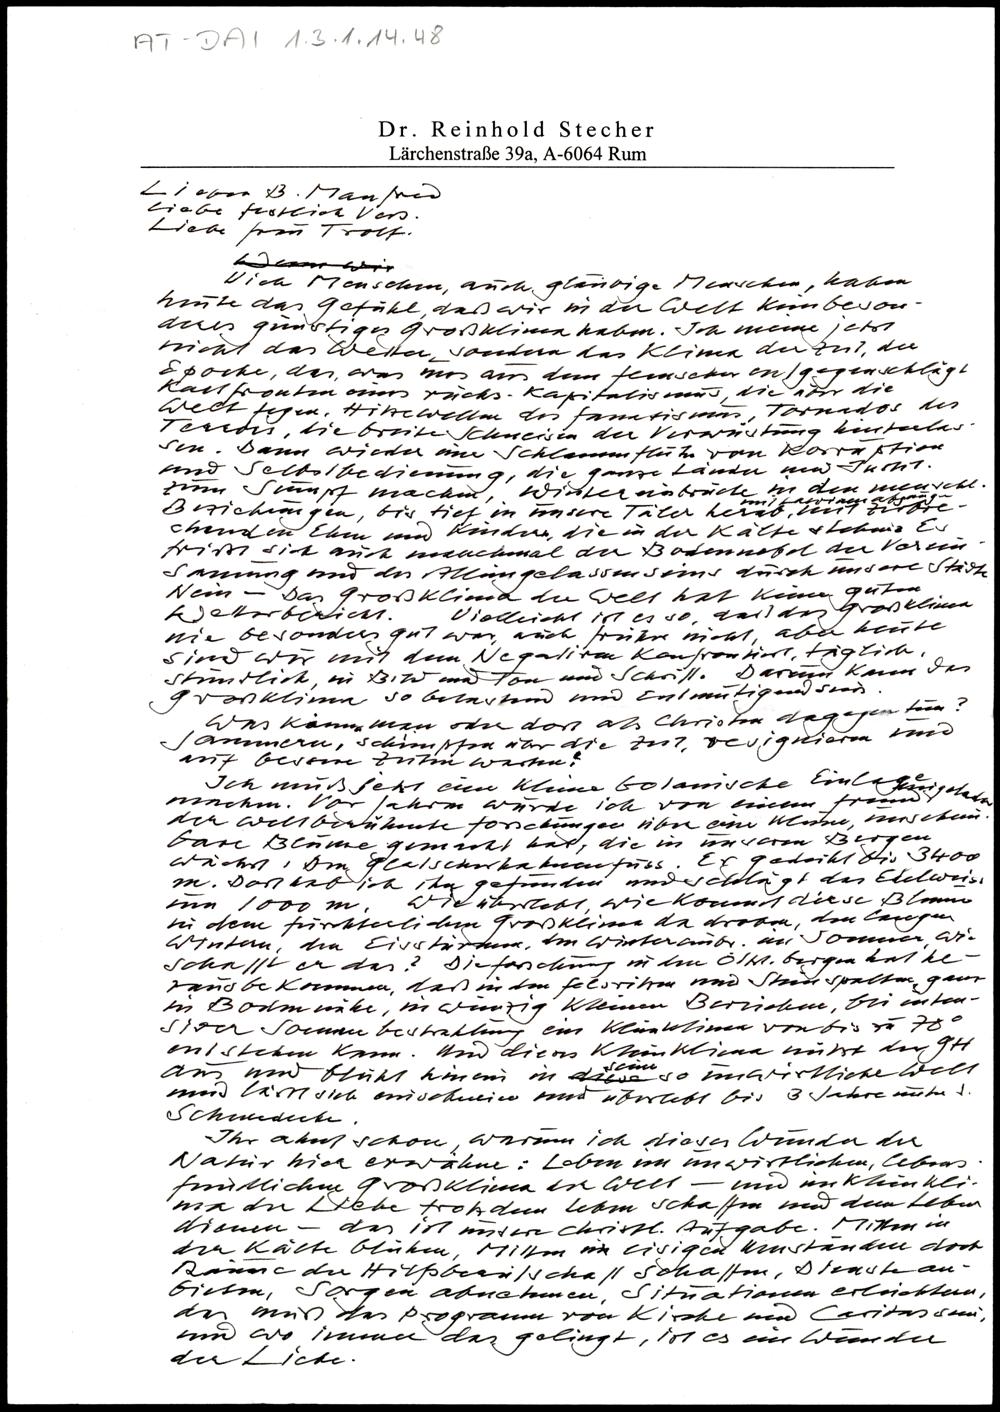 AT-DAI 1.3.1.14.48
Dr. Reinhold Stecher
Lärchenstraße 39a, A-6064 Rum
Lieber B. Manfred
Liebe festlich Vers.
Liebe Frau Troll.
Denn wir
Viele Menschen, auch gläubige Menschen, haben
heute das Gefühl, daß wir in der Welt kein beson-
deres günstiges Großklima haben. Ich meine jetzt
nicht das Wetter, sondern das Klima der Zeit, der
Epoche, das, was uns aus dem Fernseher entgegenschlägt
Kaltfronten eines rücks. Kapitalismus, die über die
Welt fegen, Hitzewellen des Fanatismus, Tornados des
Terrors, die breite Schneisen der Verwüstung hinterlas-
sen. Dann wieder eine Schlammflut von Korruption
und Selbstbedienung, die ganze Länder und
zum Sumpf machen, Wintereinbrüche in den menschl.
Beziehungen, bis tief in unsere Täler herab, mit zerbre-
chenden Ehen und Kindern, die in der Kälte stehen. Es
frißt sich auch manchmal der Bodennebel der Verein-
samung und des Alleingelassenseins durch unsere Städte
Nein – Das Großklima der Welt hat keinen guten
Wetterbericht. Vielleicht ist es so, daß das Großklima
nie besonders gut war, auch früher nicht, aber heute
sind wir mit dem Negativen konfrontiert, täglich,
stündlich, in Bild und Ton und Schrift. Darum kann das
Großklima so belastend und entmutigend sein.
Was kann man oder darf als Christen dagegen tun?
Jammern, schimpfen über die Zeit, resignieren und
auf bessere Zeiten warten?
Ich muß jetzt eine kleine botanische Einlage
machen. Vor Jahren wurde ich von einem Freund eingeladen
der weltberühmte Forschungen über eine kleine, unschein-
bare Blume gemacht hat, die in unseren Bergen
wächst: Den Gletscherhahnenfuss. Er gedeiht bis 3400
m. Dort hab ich ihn gefunden und schlägt das Edelweiss
um 1000 m. Wie überlebt, wie kommt diese Blume
in dem fürchterlichen Großklima da droben, den langen
Wintern, den Eisstürmen, den Wintereinbr. im Sommer, wie
schafft er das? Die Forschung in den Östl. Bergen hat he-
rausbekommen, daß in den Felsritzen und Steinspalten, ganz
in Bodennähe, in winzig kleinen Bereichen, bei inten-
siver Sonnenbestrahlung ein Kleinklima von bis zu 70°
entstehen kann. Und dieses Kleinklima nützt der GH
aus und blüht hinein in diese seine so unwirtliche Welt
und läßt sich einschneien und überlebt bis 3 Jahre unter d.
Schneedecke.
Ihr ahnt schon, warum ich dieses Wunder der
Natur hier erwähne: Leben im unwirtlichen, lebens-
feindlichen Großklima der Welt – und im Kleinkli-
ma der Liebe trotzdem Leben schaffen und dem Leben
dienen – das ist unsere christl. Aufgabe. Mitten in
der Kälte blühen, Mitten in eisigen Umständen doch
Räume der Hilfsbereitschaft schaffen, Dienste an-
bieten, Sorgen abnehmen, Situationen erleichtern,
das muß das Programm von Kirche und Caritas sein,
und wo immer das gelingt, ist es ein Wunder
der Liebe.